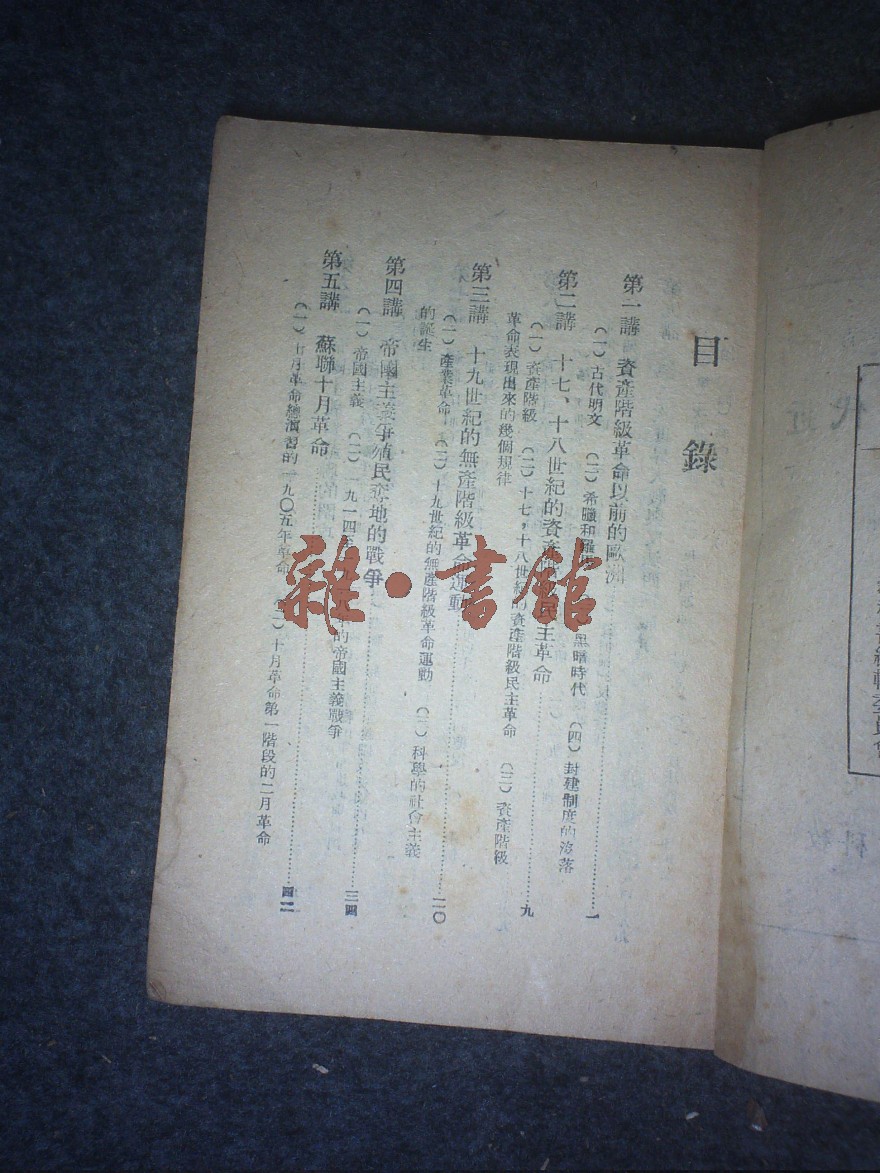 目錄
第一講 資產階級革命以前的歐洲……一
(一)古代明文 (二)希臘和羅 黑暗時代 (四)封建制度的沒落
第二講 十七、十八世紀的資產 民主革命……九
(一)資產階級 (二)十七,十八世紀的資產階級民主革命 (三)資產階級
革命表現出來的幾個規律
第三講 十九世紀的無產階級革命運動……二〇
(一)產業革命 (二)十九世紀的無產階級革命運動 (三)科學的社會主義
的誕生
第四講 帝國主義爭殖民奪地的戰爭……三四
(一)帝國主義 (二)一九一四 年的帝國主義戰爭
第五講 蘇聯十月革命……四二
(一)十月革命總演習的一九〇五年革命 (二)十月革命第一階段的二月革命
雜·書館